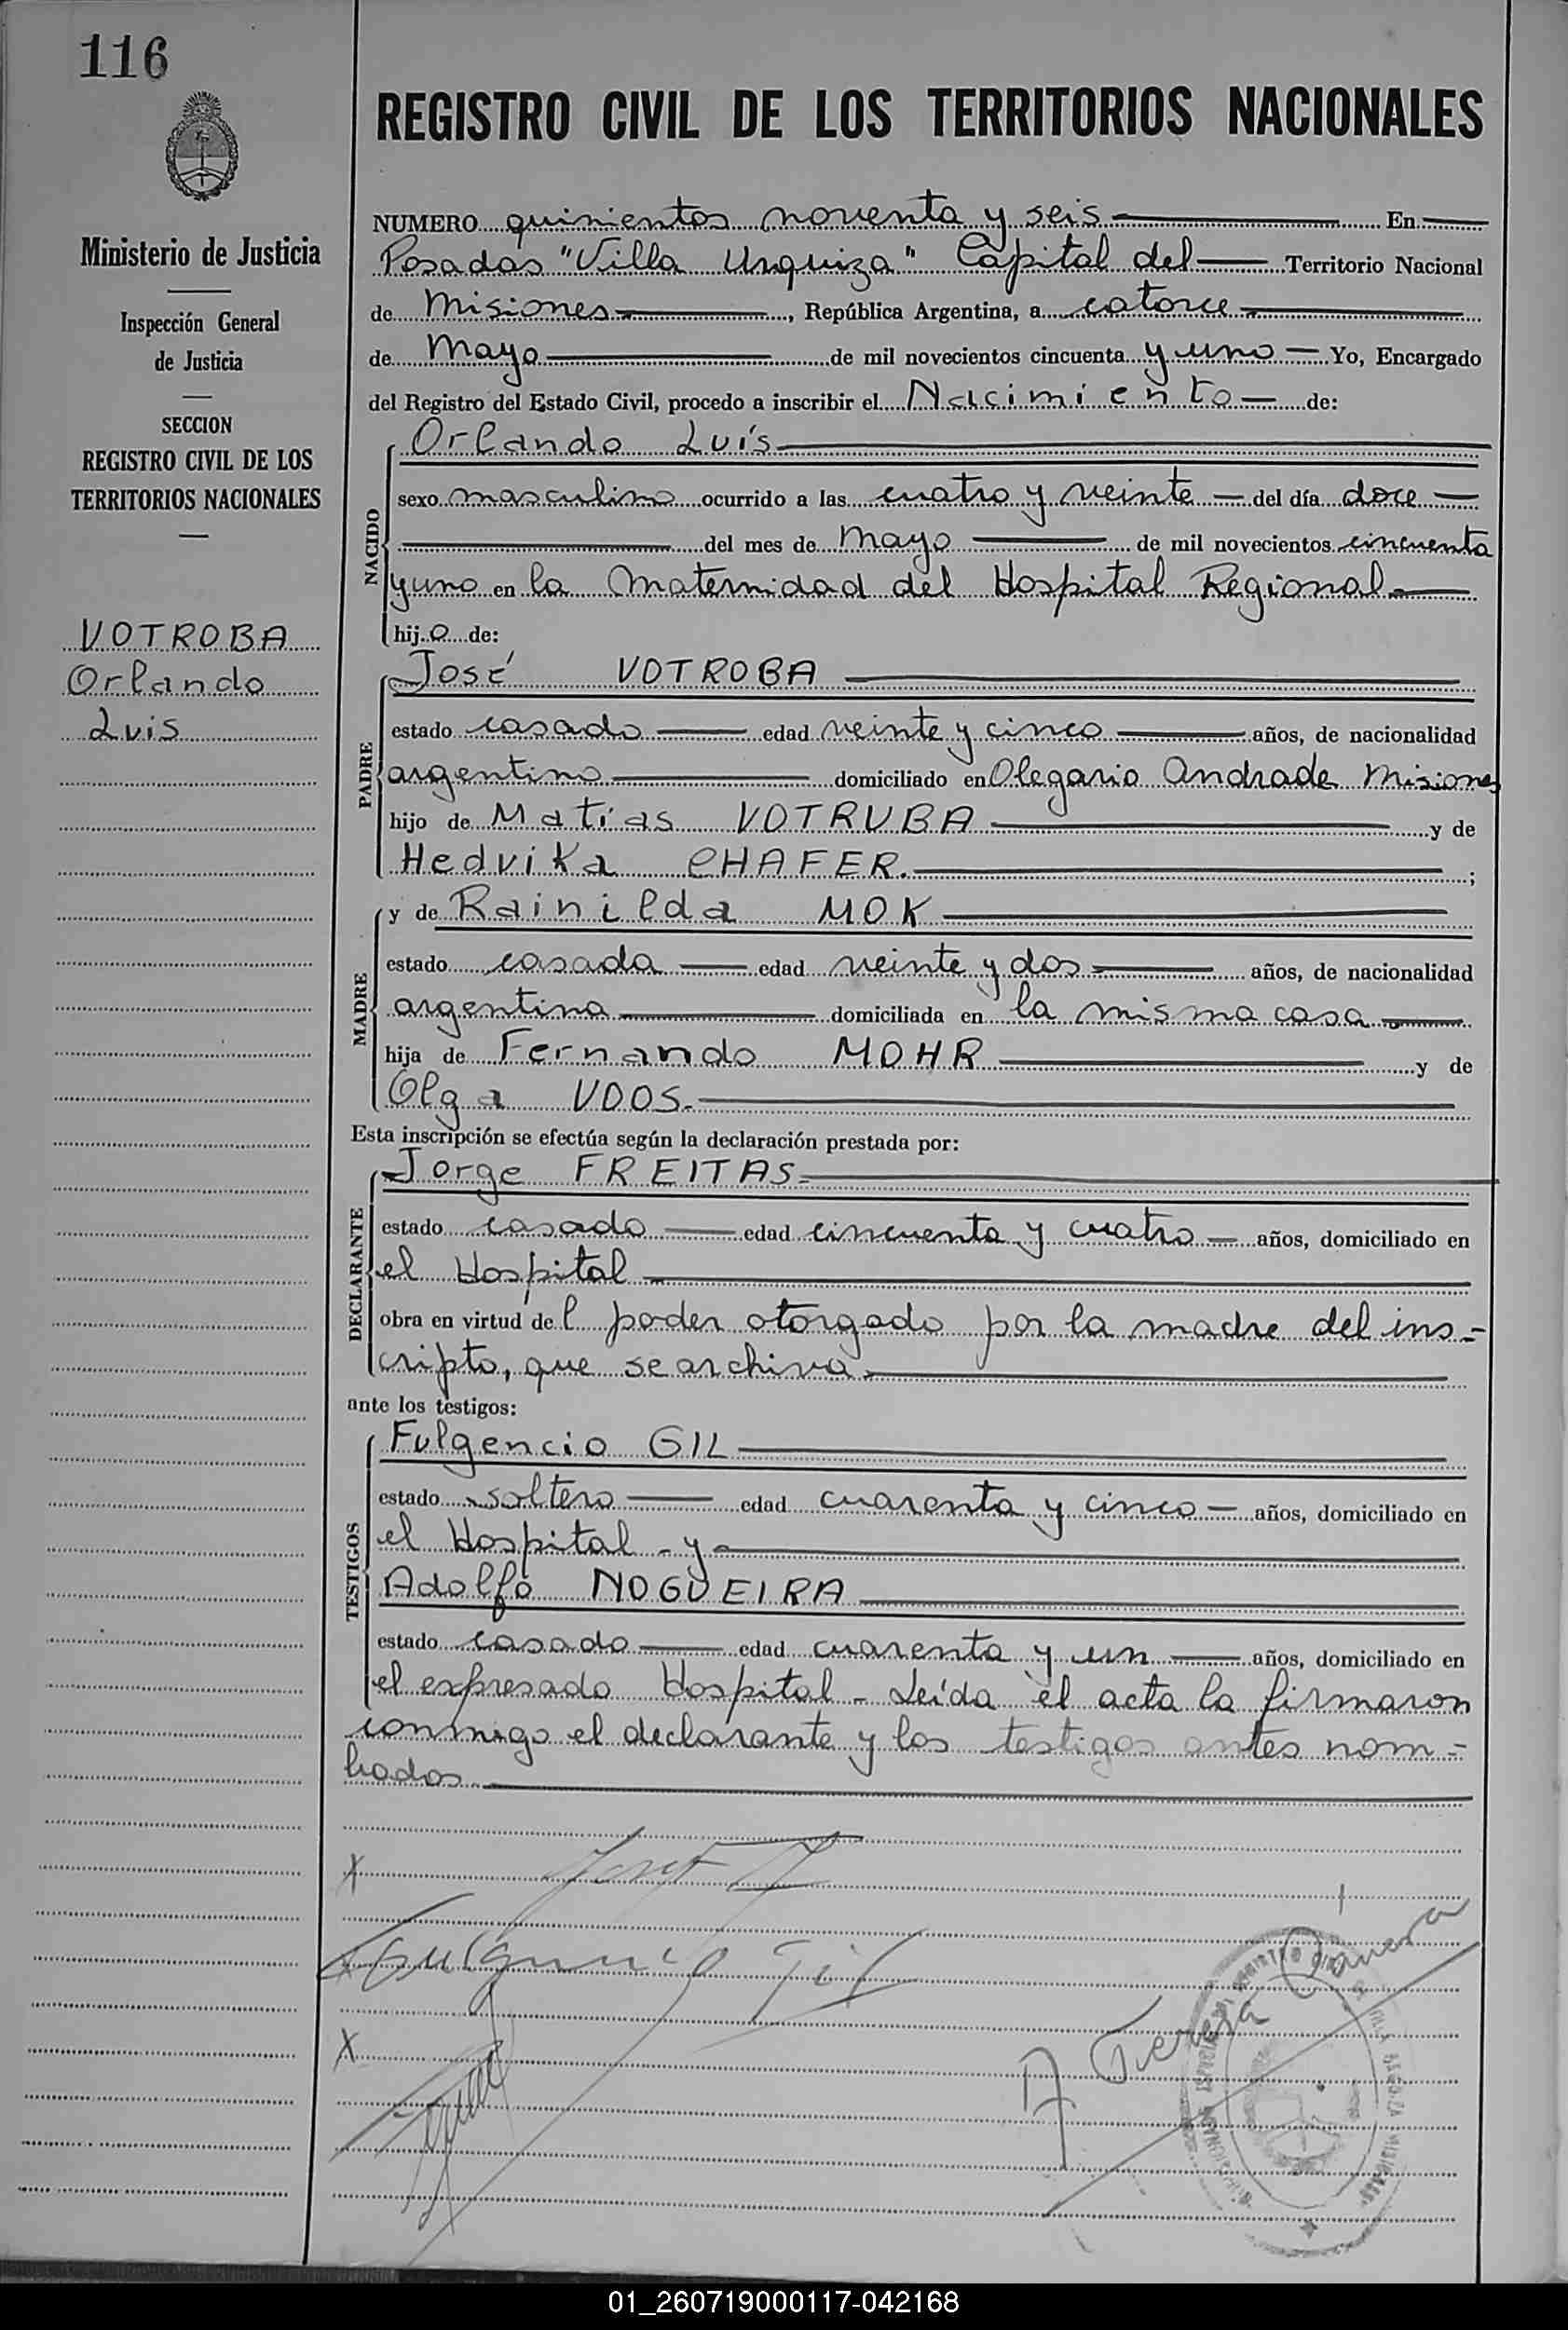 116
REGISTRO CIVIL DE LOS TERRITORIOS NACIONALES
Ministerio de Justicia
Inspección General
de Justicia
SECCION
REGISTRO CIVIL DE LOS
TERRITORIOS NACIONALES
VOTROBA
Orlando
Luis
NUMERO quinientos noventa y seis En
Posadas "Villa Urquiza" Capital del Territorio Nacional
de Misiones, República Argentina, a catorce
de Mayo de mil novecientos cincuenta y uno Yo, Encargado
del Registro del Estado Civil, procedo a inscribir el Nacimiento de:
NACIDO
Orlando Luís
sexo masculino ocurrido a las cuatro y veinte del día doce
del mes de Mayo de mil novecientos cincuenta
y uno en la Maternidad del Hospital Regional
hijo de:
PADRE
José VOTROBA
estado casado edad veinte y cinco años, de nacionalidad
argentino domiciliado en Olegario Andrade Misiones
hijo de Matías VOTRUBA y de
Hedvika CHAFER.;
MADRE
y de Rainilda MOK
estado casada edad veinte y dos años, de nacionalidad
argentina domiciliada en la misma casa
hija de Fernando MOHR y de
Olga UDOS.
Esta inscripción se efectúa según la declaración prestada por:
DECLARANTE
Jorge FREITAS
estado casado edad cincuenta y cuatro años, domiciliado en
el Hospital
obra en virtud del poder otorgado por la madre del ins-
cripto, que se archiva
ante los testigos:
TESTIGOS
Fulgencio GIL
estado soltero edad cuarenta y cinco años, domiciliado en
el Hospital - y
Adolfo NOGUEIRA
estado casado edad cuarenta y un años, domiciliado en
el expresado Hospital - Leída el acta la firmaron
conmigo el declarante y los testigos antes nom-
brados
Fulgencio Gil
A Teresa
01_260719000117-042168